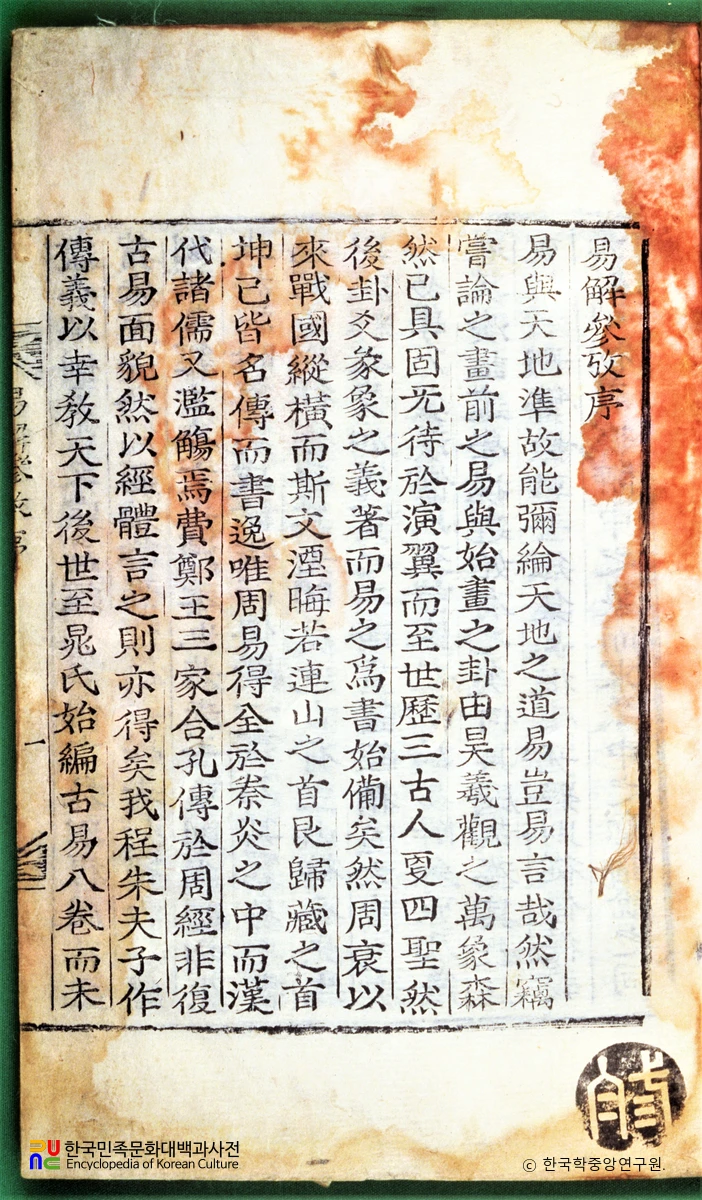 易解參攷序
易與天地準故能彌綸天地之道易豈易言哉然竊
嘗論之畫前之易與始畫之卦由昊羲觀之萬象森
然已具固无待於演翼而至世歷三古人更四聖然
後卦爻彖象之義著而易之爲書始備矣然周衰以
來戰國縱橫而斯文湮晦若連山之首艮歸藏之首
坤已皆名傳而書逸唯周易得全於秦炎之中而漢
代諸儒又濫觴焉費鄭王三家合孔傳於周經非復
古易面貌然以經體言之則亦得矣我程朱夫子作
傳義以幸敎天下後世至晁氏始編古易八卷而未
易解參攷序
一
한국민족문화대백과사전
Encyclopedia of Korean Culture
© 한국학중앙연구원.